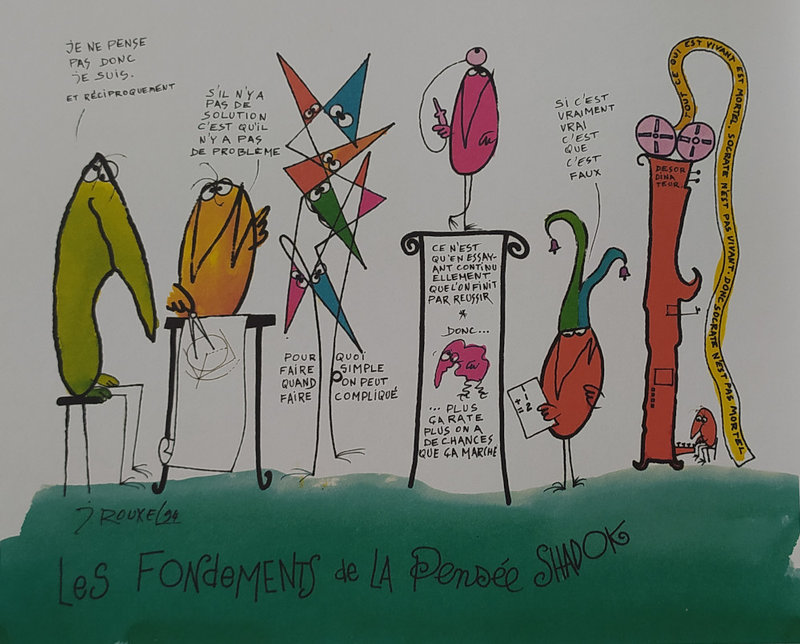 JE NE PENSE
PAS DONC
JE SUIS.
ET RÉCIPROQUEMENT
S'IL N'YA
PAS DE
SOLUTION
C'EST QU'IL
N'YA PAS
DE PROBLÈME
POUR QUOI
FAIRE SIMPLE
QUAND ON PEUT
FAIRE COMPLIQUÉ
CE N'EST
QU'EN ESSAY-
ANT CONTINU
ELLEMENT
QUE L'ON FINIT
PAR REUSSIR
*
DONC...
... PLUS
ÇA RATE
PLUS ON A
DE CHANCES
QUE ÇA MARCHE
SI C'EST
VRAIMENT
VRAI
C'EST
QUE
C'EST
FAUX
DESOR
DINA
TEUR.
TOUT CE QUI EST VIVANT EST MORTEL. SOCRATE N'EST PAS VIVANT. DONC SOCRATE N'EST PAS MORTEL
J ROUXEL 94
LES FONDEMENTS de LA Pensée SHADOK